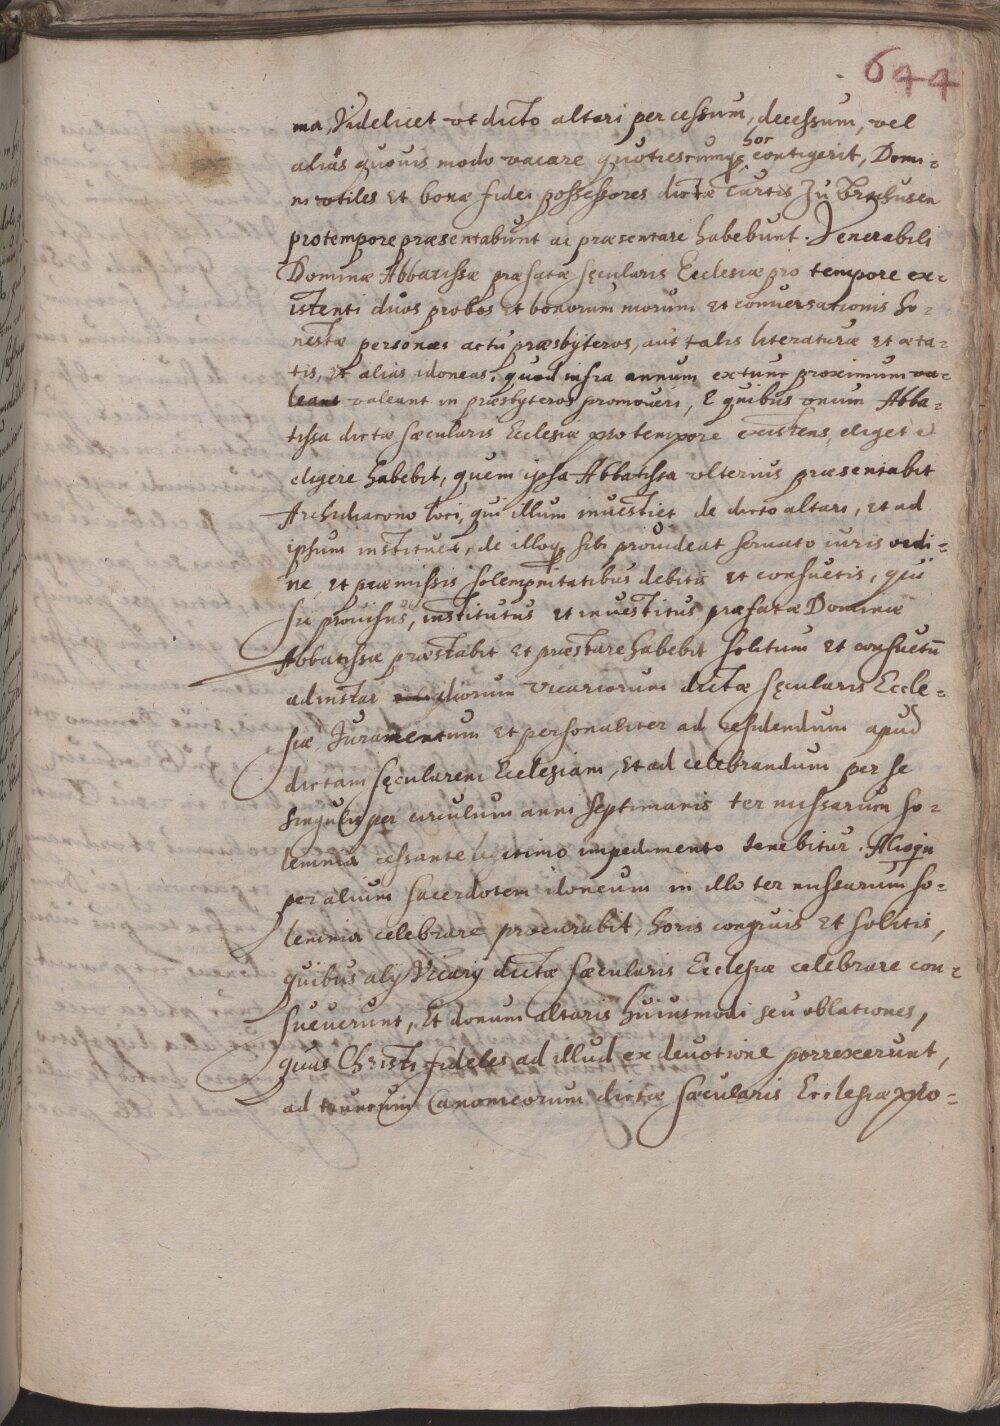 644
ma, Videlicet vt dicto altari per cessum, decessum, vel
aliàs quouis modo vacare quotiescumqꝫ hoc contigerit, Domi=
ni vtiles et bonæ fidei possessores dictæ Curtis Zu
pro tempore præsentabunt ac præsentare habebunt. Venerabili
Dominæ Abbatissæ præfatæ sęcularis Ecclesiæ pro tempore ex=
istenti duos probos et bonorum morum et conuersationis ho=
nestæ personas actu præsbÿteros, aut talis literaturæ et æta=
tis, et aliàs idoneas, quod infra annum extunc proximum va=
leant valeant in præsbyteros promoueri, E quibus vnum Abba=
tissa dictæ sæcularis Ecclesiæ pro tempore existens eliget et
eligere habebit, quem ipsa Abbatissa vlterius præsentabit
Archidiacono loci, qui illum inuestiet de dicto altari, et ad
ipsum instituet, de illoqꝫ sibi prouideat seruato iuris ordi=
ne, et præmissis solempnitatibus debitis et consuetis, qui
sic prouisus, institutus et inuestitus præfatæ Dominæ
Abbatissæ præstabit et præstare habebit solitum et consuetū
ad instar aliorum Vicariorum dictæ sęcularis Eccle=
siæ Juramentum et personaliter ad residendum apud
dictam sęcularem Ecclesiam, et ad celebrandum per se
singulis per circulum anni septimanis ter missarum so=
lemnia cessante legitimo impedimento tenebitur. Alioqui
per alium sacerdotem idoneum in illo ter missarum so=
lemnia celebrare procurabit, horis congruis et solitis,
quibus alÿ Vicarÿ dictæ sæcularis Ecclesiæ celebrare con=
sueuerunt, Et donum altaris huiusmodi seu oblationes,
quas Christi fideles ad illud ex deuotione porrexerunt,
ad truncum Canonicorum dictæ sæcularis Ecclesiæ pro=